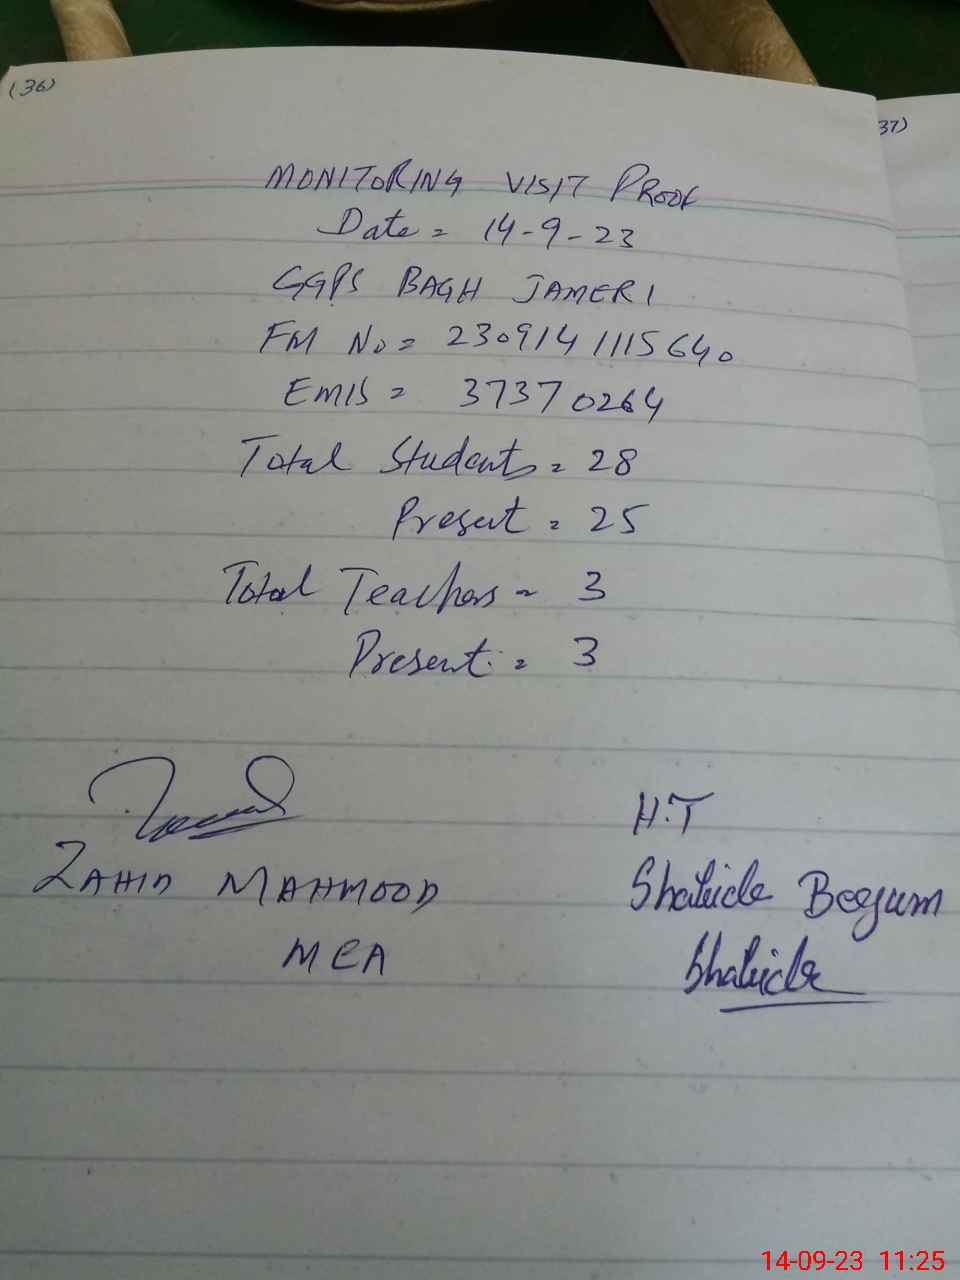 (36)
37)
MONITORING VISIT PROOF
Date = 14-9-23
GGPS BAGH JAMERI
FM No = 230914 1115640
EMIS = 37370264
Total Students = 28
Present = 25
Total Teachers = 3
Present = 3
H.T
ZAHID MAHMOOD
Shahida Beegum
MEA
Shahida
14-09-23 11:25